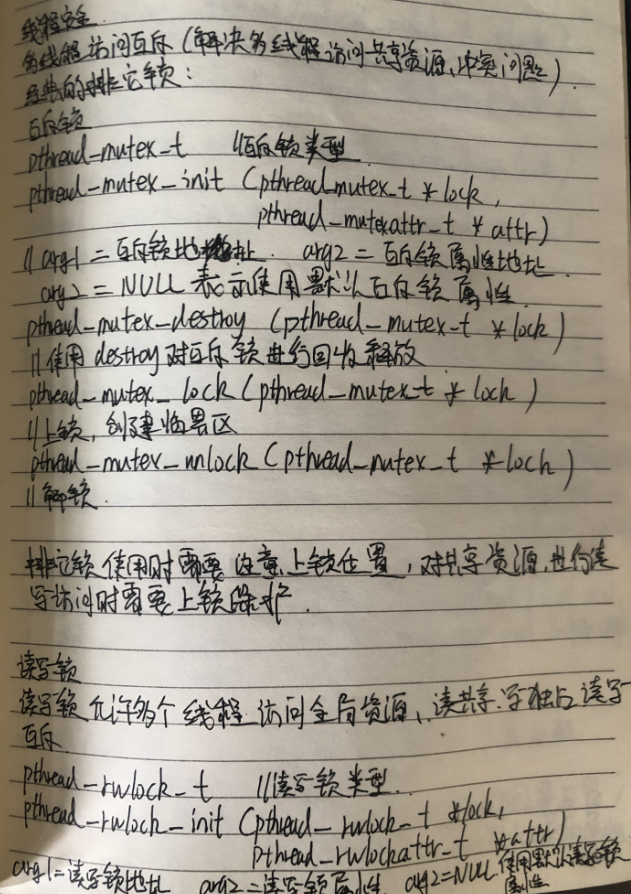 线程安全
多线程访问互斥(解决多线程访问共享资源,冲突问题).
经典的排它锁:
互斥锁
pthread_mutex_t //互斥锁类型
pthread_mutex_init (pthread_mutex_t *lock,
pthread_mutexattr_t *attr)
//arg1=互斥锁地址. arg2=互斥锁属性地址.
arg2=NULL 表示使用默认互斥锁属性
pthread_mutex_destroy (pthread_mutex_t *lock)
//使用destroy对互斥锁进行回收释放
pthread_mutex_lock(pthread_mutex_t *lock)
//上锁,创建临界区
pthread_mutex_unlock(pthread_mutex_t *lock)
//解锁.
排它锁使用时需要注意上锁位置,对共享资源,进行读
写访问时需要上锁
读写锁
读写锁允许多个线程访问全局资源,读共享.写独占读写
互斥.
pthread_rwlock_t //读写锁类型.
pthread_rwlock_init (pthread_rwlock_t *lock,
pthread_rwlockattr_t *attr)
arg1=读写锁地址 arg2=读写锁属性 arg2=NULL 使用默认读写锁
属性